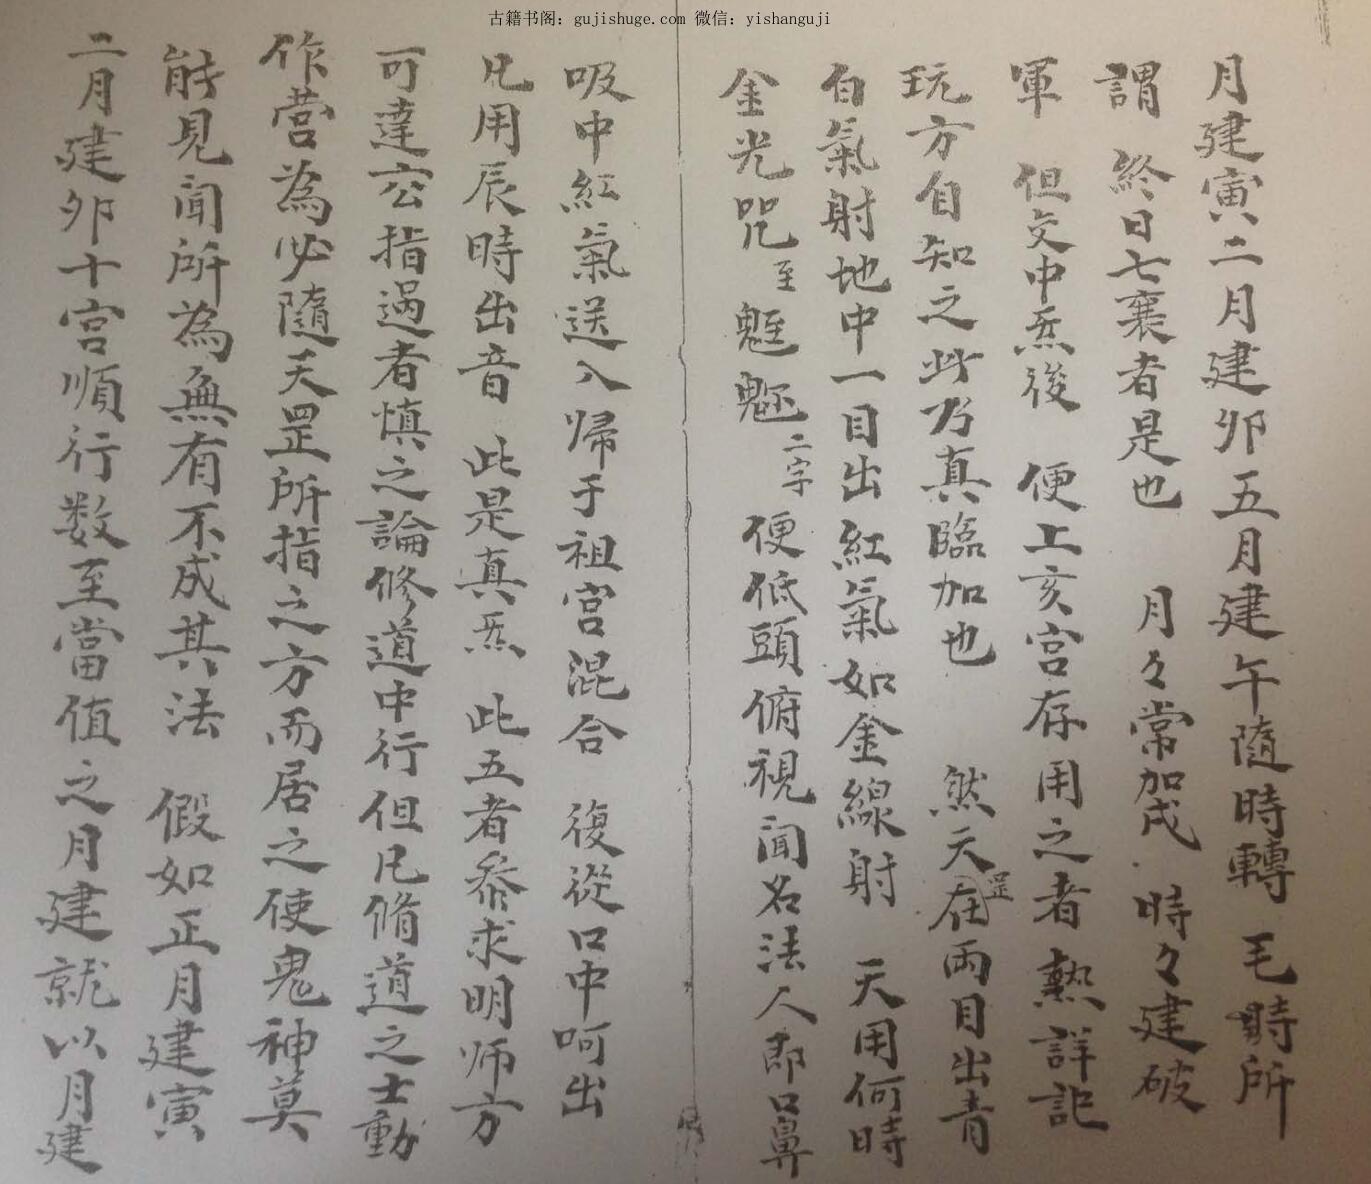 古籍书阁：gujishuge.com 微信：yishanguji
月建寅二月建卯五月建午隨時轉 毛時所
謂 終日七襄者是也 月々常加戌 時々建破
軍 但文中炁後 便上亥宮存用之者熟詳記
玩方自知之此乃真臨加也 然天罡在兩目出青
白氣射地中一目出紅氣如金線射 天用何時
金光咒至魁魓二字便低頭俯視聞名法人即口鼻
吸中紅氣送入歸于祖宮混合 復從口中呵出
凡用辰時出音 此是真炁 此五者叅求明师方
可達玄指遇者慎之論修道中行但凡脩道之士動
作营為必隨天罡所指之方而居之使鬼神莫
能見聞所為無有不成其法 假如正月建寅
二月建卯十宮順行数至當值之月建就以月建